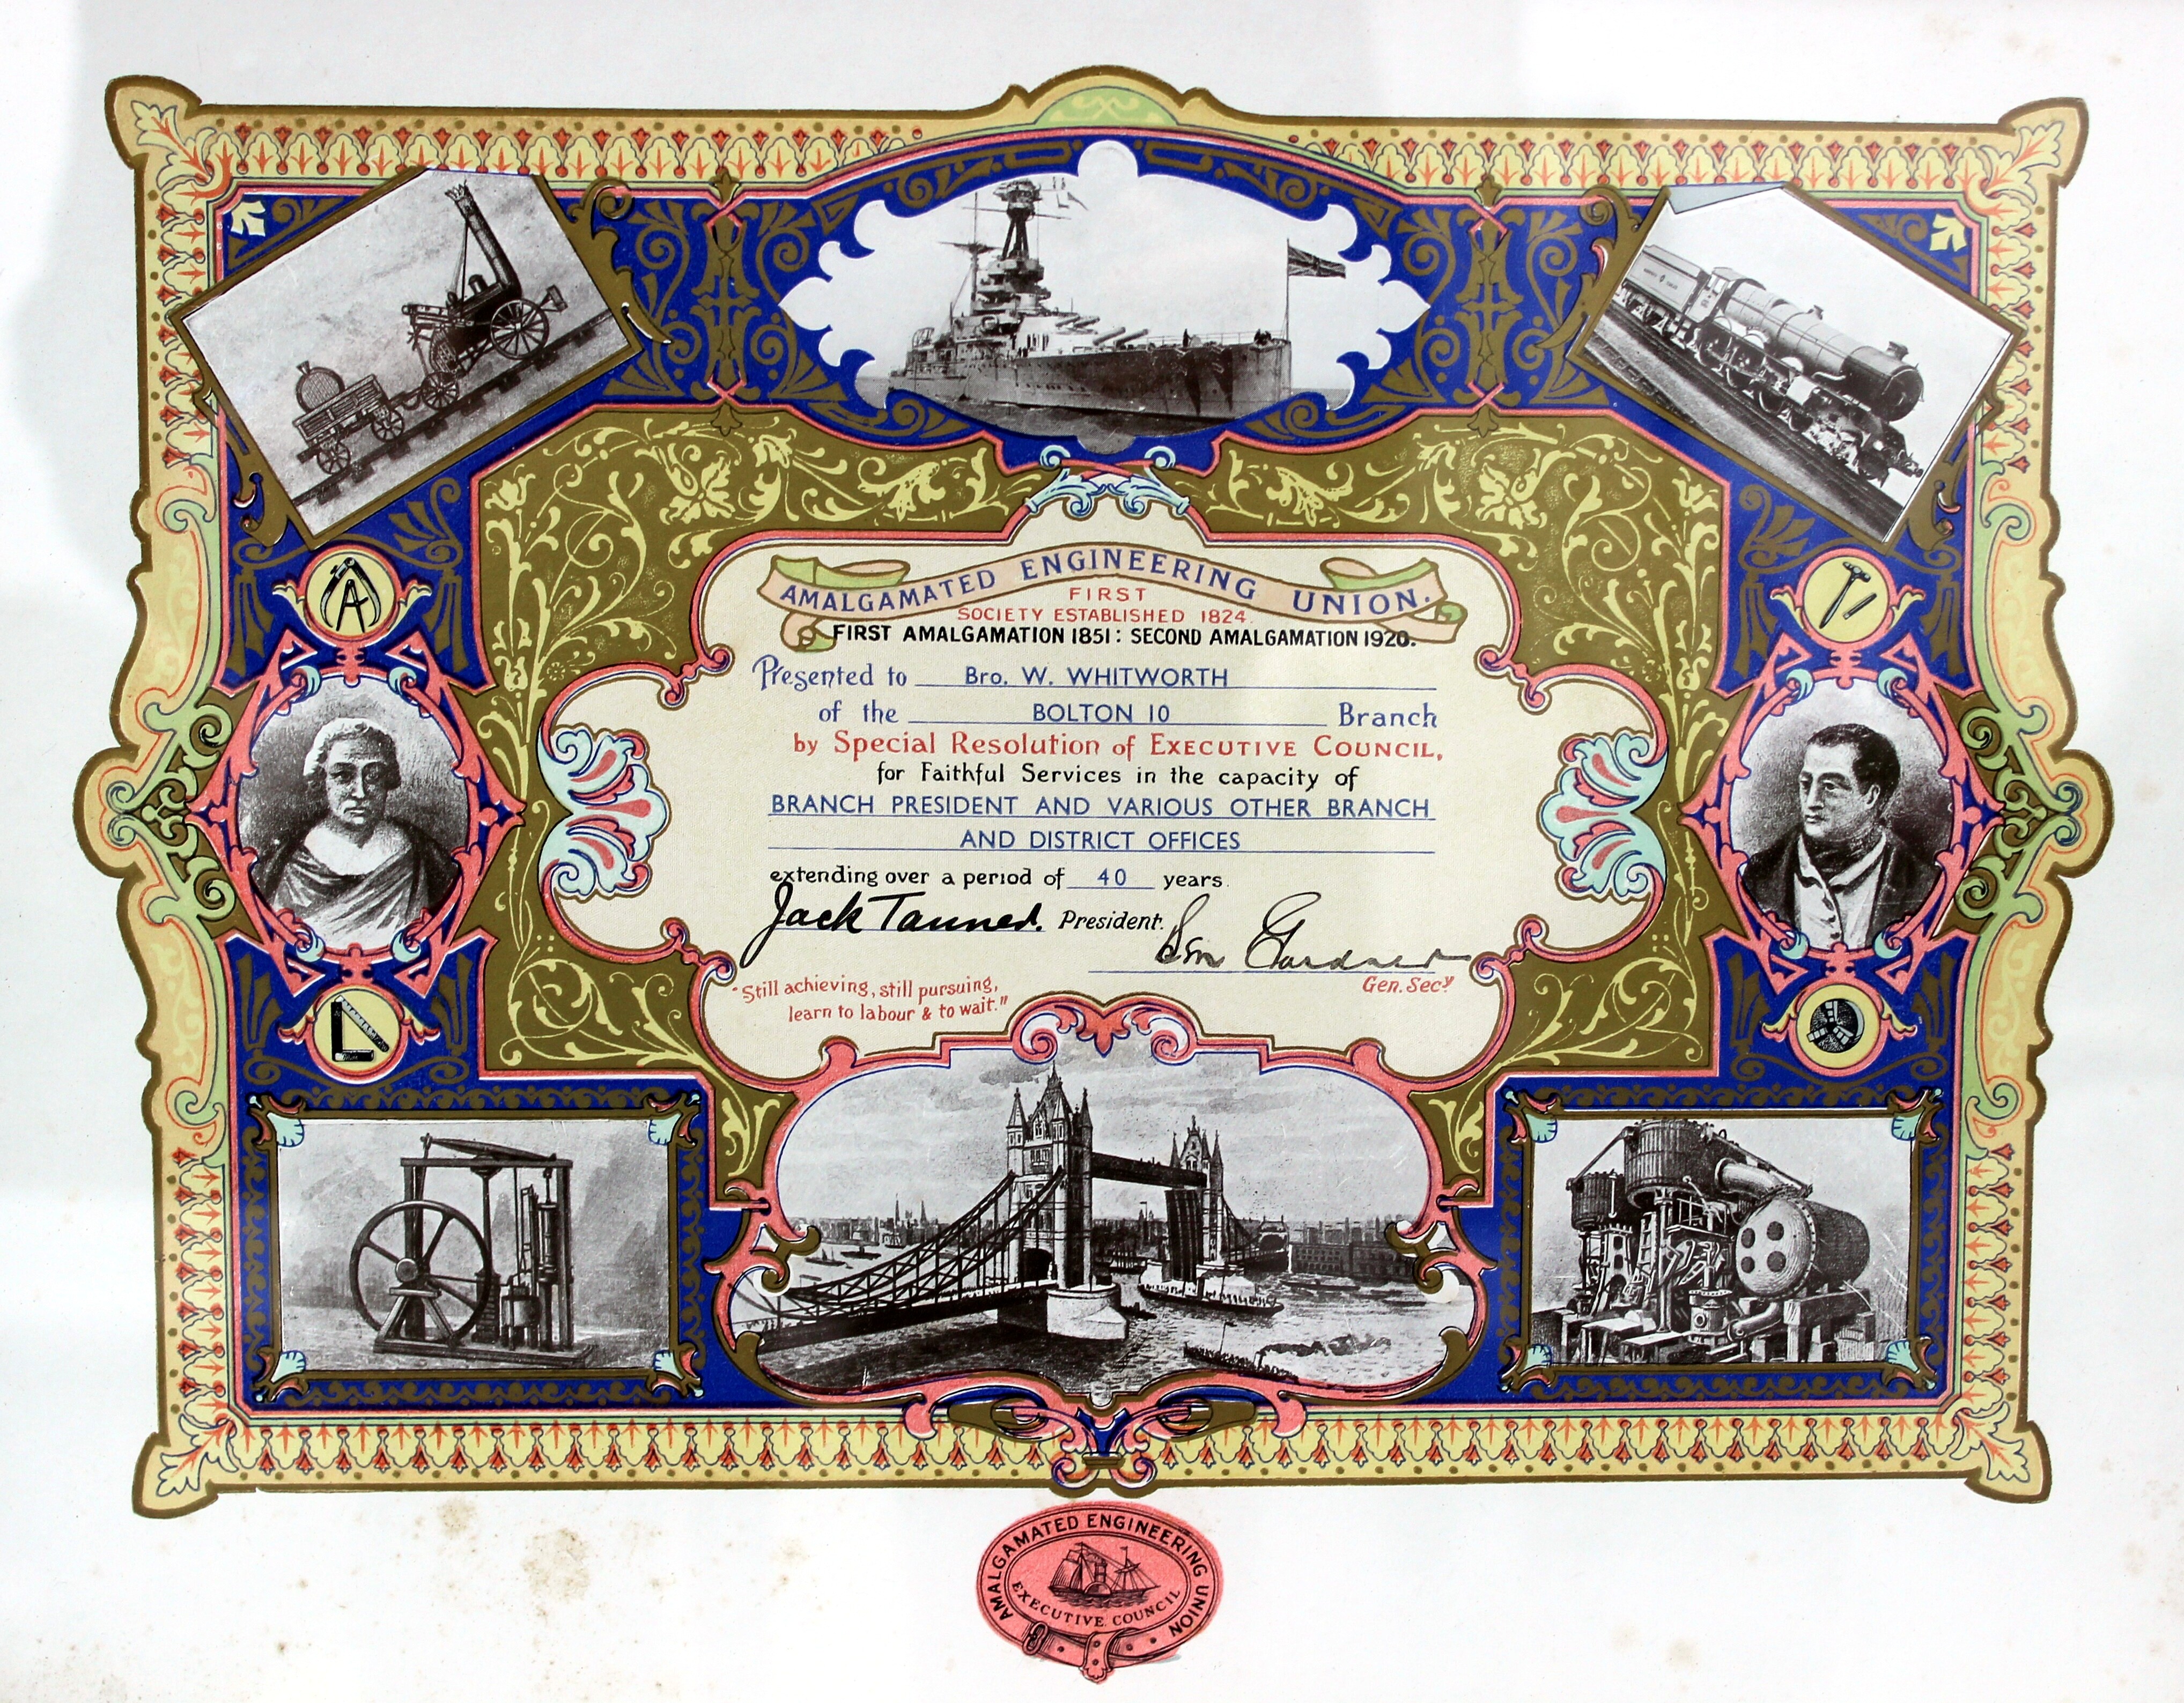 AMALGAMATED ENGINEERING UNION.
FIRST
SOCIETY ESTABLISHED 1824.
FIRST AMALGAMATION 1851: SECOND AMALGAMATION 1920.
Presented to Bro. W. WHITWORTH
of the BOLTON 10 Branch
by Special Resolution of EXECUTIVE COUNCIL,
for Faithful Services in the capacity of
BRANCH PRESIDENT AND VARIOUS OTHER BRANCH
AND DISTRICT OFFICES
extending over a period of 40 years.
Jack Tanner. President.
Ben Gardner
Gen. Secy
"Still achieving, still pursuing,
learn to labour & to wait."
AMALGAMATED ENGINEERING UNION
EXECUTIVE COUNCIL